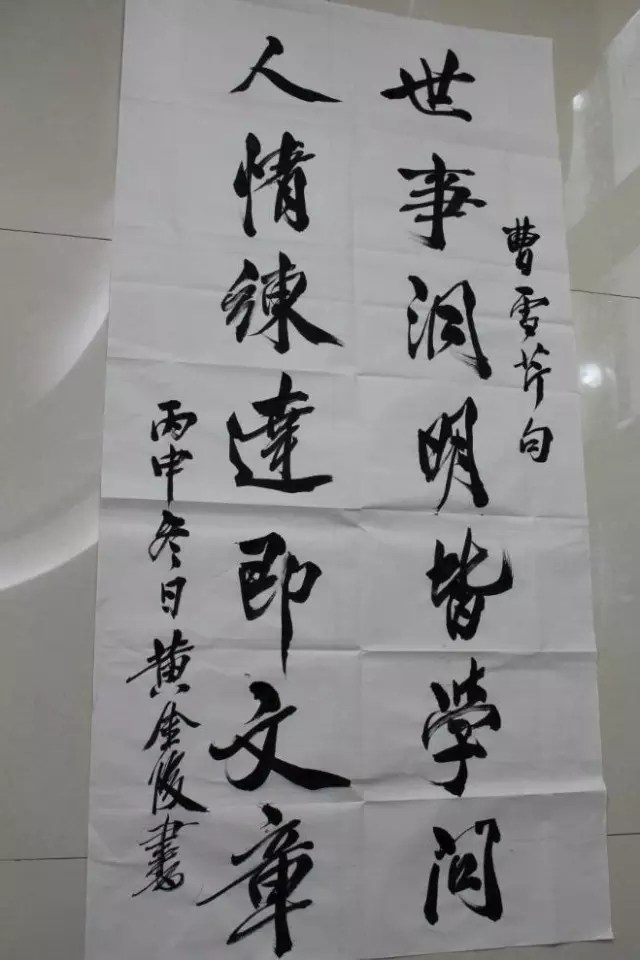 曹雪芹句
世事洞明皆学问
人情練達即文章
丙申冬日黄金陵書